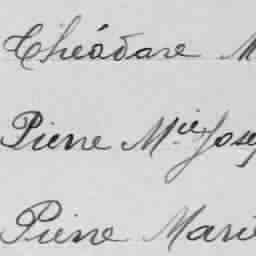 Théodare M
Pierre M.ie Josep
Pierre Marie